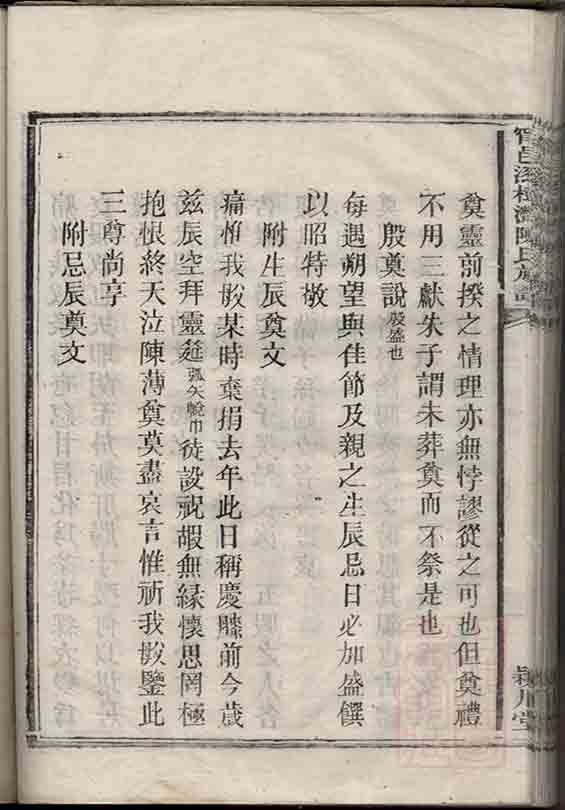 奠靈前揆之情理亦無悖謬從之可也但奠禮
不用三獻朱子謂未葬奠而不祭是也
殷奠說 殷盛也
每遇朔望與佳節及親之生辰忌日必加盛饌
以昭特敬
附生辰奠文
痛惟我𣪞某時棄捐去年此日稱慶膝前今歲
茲辰空拜靈筵 弧矢帨巾 徒設祝嘏無緣懷思罔極
抱恨終天泣陳薄奠莫盡哀言惟祈我𣪞鑒此
三尊尚享
附忌辰奠文
陳氏族譜
潁川堂